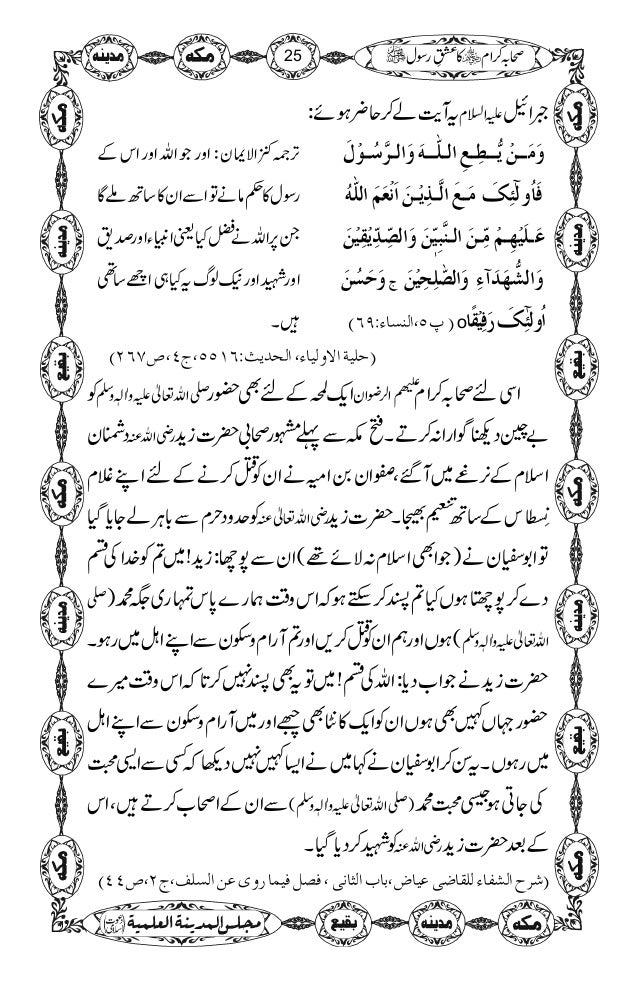 صحابہ کرام کا عشق رسول ﷺ
25
مکه
مدینه
جبرائیل علیہ السلام یہ آیت لے کر حاضر ہوئے:
وَمَنْ يُّطِعِ اللّٰهَ وَالرَّسُوْلَ
فَاُولٰٓئِكَ مَعَ الَّذِيْنَ اَنْعَمَ اللّٰهُ
عَلَيْهِمْ مِّنَ النَّبِيّٖنَ وَالصِّدِّيْقِيْنَ
وَالشُّهَدَآءِ وَالصّٰلِحِيْنَ ج وَحَسُنَ
اُولٰٓئِكَ رَفِيْقًاo ( پ ۵، النساء: ۶۹)
ترجمہ کنزالایمان: اور جو اللہ اور اس کے
رسول کا حکم مانے تو اسے ان کا ساتھ ملے گا
جن پر اللہ نے فضل کیا یعنی انبیاء اور صدیق
اور شہید اور نیک لوگ یہ کیا ہی اچھے ساتھی
ہیں۔
(حلیة الاولیاء، الحدیث: ۵۵۱۶، ج۴، ص۲۶۷)
اسی لئے صحابہ کرام علیہم الرضوان ایک لمحہ کے لئے بھی حضور صلی اللہ تعالیٰ علیہ والہ وسلم کو
بے چین دیکھنا گوارا نہ کرتے۔ فتح مکہ سے پہلے مشہور صحابی حضرت زید رضی اللہ عنہ دشمنان
اسلام کے نرغے میں آگئے، صفوان بن امیہ نے ان کو قتل کرنے کے لئے اپنے غلام
نِسطاس کے ساتھ تنعیم بھیجا۔ حضرت زید رضی اللہ تعالیٰ عنہ کو حدود حرم سے باہر لے جایا گیا
تو ابوسفیان نے (جو ابھی اسلام نہ لائے تھے) ان سے پوچھا: زید! میں تم کو خدا کی قسم
دے کر پوچھتا ہوں کیا تم پسند کر سکتے ہو کہ اس وقت ہمارے پاس تمہاری جگہ محمد (صلی
اللہ تعالیٰ علیہ والہ وسلم) ہوں اور ہم ان کو قتل کریں اور تم آرام و سکون سے اپنے اہل میں رہو۔
حضرت زید نے جواب دیا: اللہ کی قسم! میں تو یہ بھی پسند نہیں کرتا کہ اس وقت میرے
حضور جہاں کہیں بھی ہوں ان کو ایک کانٹا بھی چبھے اور میں آرام و سکون سے اپنے اہل
میں رہوں۔ یہ سن کر ابوسفیان نے کہا میں نے ایسا کہیں نہیں دیکھا کہ کسی سے ایسی محبت
کی جاتی ہو جیسی محبت محمد (صلی اللہ تعالیٰ علیہ والہ وسلم) سے ان کے اصحاب کرتے ہیں، اس
کے بعد حضرت زید رضی اللہ عنہ کو شہید کر دیا گیا۔
(شرح الشفاء للقاضی عیاض، باب الثانی، فصل فیما روی عن السلف، ج۲، ص۴۴)
مکه
مدینه
بقیع
مکه
مدینه
بقیع
مکه
مکه
مدینه
بقیع
مکه
مدینه
بقیع
مکه
مکه
مدینه
بقیع
مجلس المدینة العلمیة